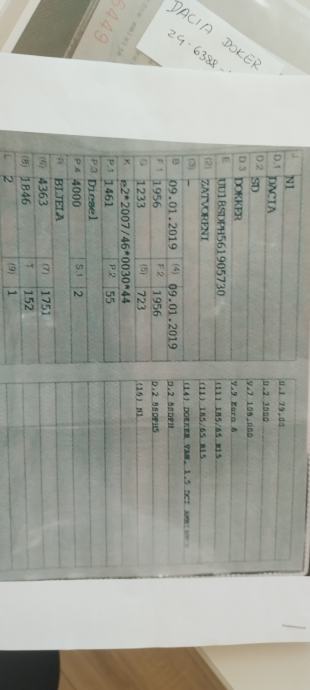 6449
DACIA DOKER
J N1
D.1 DACIA
D.2 SD
D.3 DOKKER
E UU18SDPH561905730
(2) ZATVORENI
(3) -
B 09.01.2019 (4) 09.01.2019
F.1 1956 F.2 1956
G 1233 (5) 723
K e2*2007/46*0030*44
P.1 1461 P.2 55
P.3 Diesel
P.4 4000 S.1 2
R BIJELA
(6) 4363 (7) 1751
(8) 1846 T 152
L 2 (9) 1
V.9 Euro 6
(11) 185/65 R15
(11) 185/65 R15
(14) DOKKER VAN, 1.5 DCI
D.2 8SDPH
D.2 8SDPH5
(16) N1